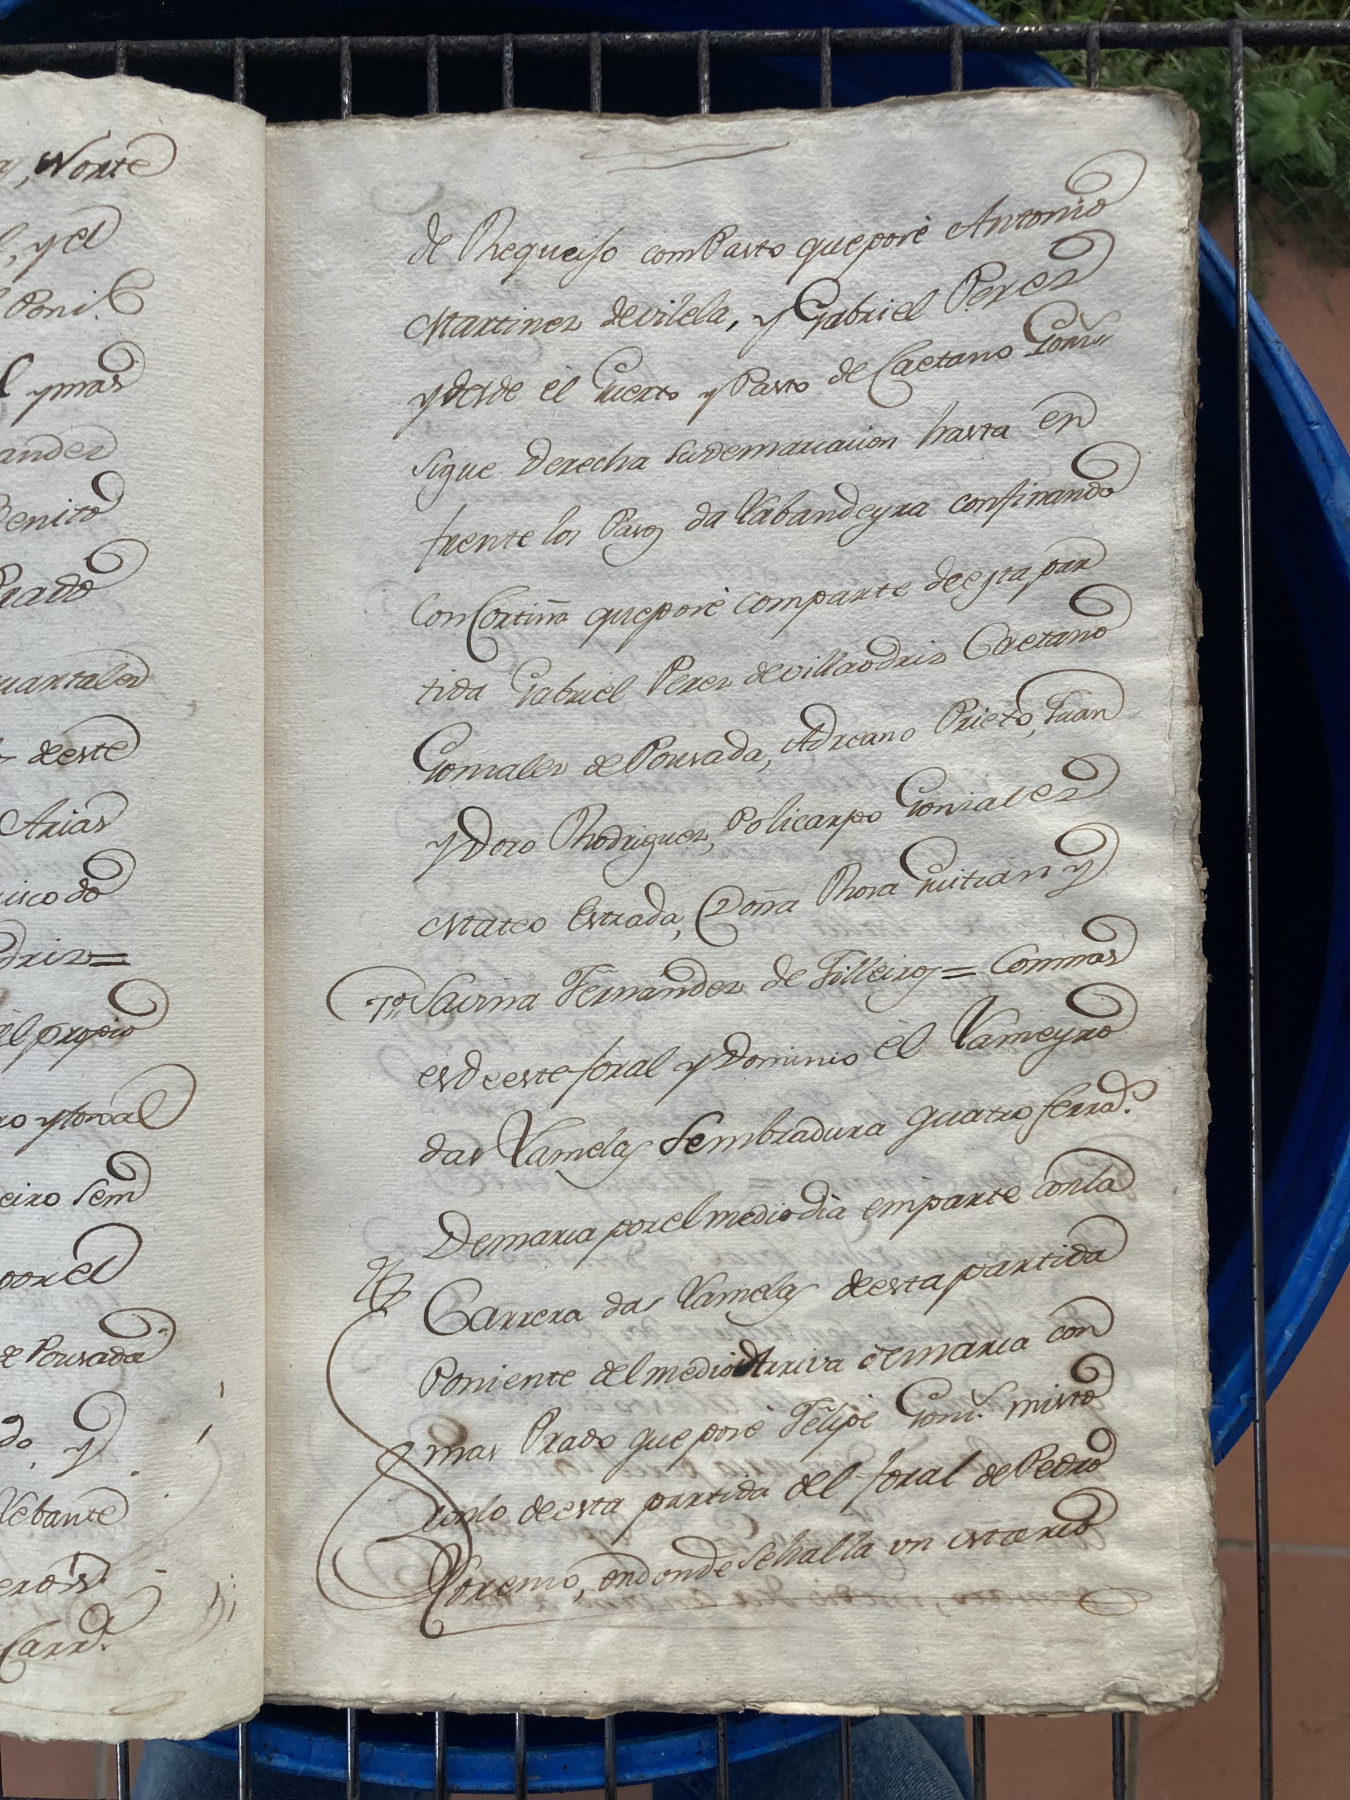 y, Norte
, y el
Poni.
l y mas
andez
Benito
Prado
uartales
deeste
Arias
isco do
driz =
el propio
ro y foral
eiro sem
por el
de Pousada
do, y
Lebante
Carrª.
de Requeijo com Pasto que poŕe Antonio
Martinez de vilela, y Gabriel Perez
y desde él Guerto y Pasto de Caetano Gonz.
sigue Derecha su demarcacion hasta en
frente los Pasos da Labandeyra confinando
Con Cortiña que poŕe comparte de esta par
tida Gabriel Perez de villaodriz Caetano
Gonzalez de Pousada, Adreano Prieto, Juan
y Ydoro Rodriguez, Policarpo Gonzalez
Mateo Estrada, Doña Rosa Guitián y
7º. Savina Fernandez de Filleiros = Com mas
es de este foral y Dominio él Lameyro
das Lamelas Sembradura quatro ferrad.s
Demarca por el medio dia emparte con la
Carrera das Lamelas de esta partida
Poniente del medio Arriva demarca con
mas Prado que poŕe Felipe Gonz. misto
conlo de esta partida del foral de Pedro
Lorenzo, en donde se halla un